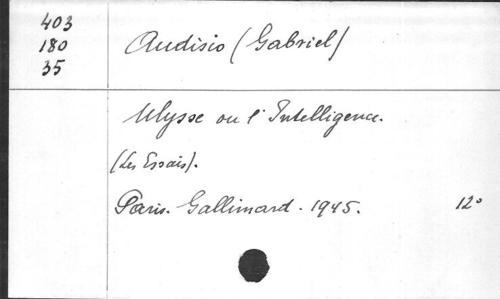 403
180
35
Audisio (Gabriel)
Ulysse ou l'Intelligence.
(Les Essais).
Paris. Gallimard. 1945. 12°